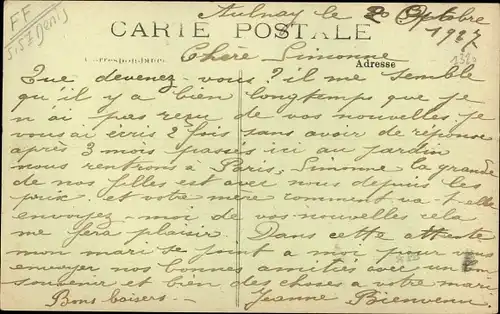 FF
S.St Denis
Aulnay le 20 Octobre
CARTE POSTALE
1927
Correspondance
Adresse
Chère Simonne
Que devenez-vous? il me semble
qu'il y a bien longtemps que je
n'ai pas reçu de vos nouvelles. je
vous ai écris 2 fois sans avoir de réponse
après 3 mois passés ici au jardin
nous rentrons à Paris, Simonne la grande
de nos filles est avec nous depuis les
prix. et votre mère comment va-t-elle
envoyez-moi de vos nouvelles cela
me fera plaisir. Dans cette attente
mon mari se joint a moi pour vous
envoyer nos bonnes amitiés avec un bon
souvenir et bien des choses a votre mari
Bons baisers -- Jeanne Bienvenu.